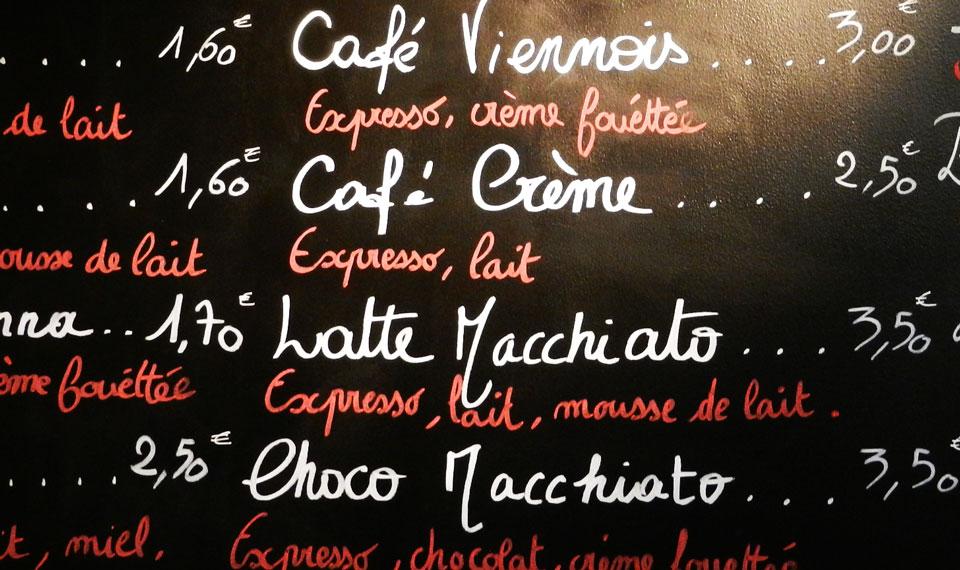 . . . . 1,60€ Café Viennois . . . . . 3,00€
de lait Expresso, crème fouéttée
. . . . 1,60€ Café Crème . . . . 2,50€
ousse de lait Expresso, lait
nna . . 1,70€ Latte Macchiato . . . . 3,50€
ème fouéttée Expresso, lait, mousse de lait .
. . . . 2,50€ Choco Macchiato . . . . 3,50€
it, miel. Expresso, chocolat, crème fouettée